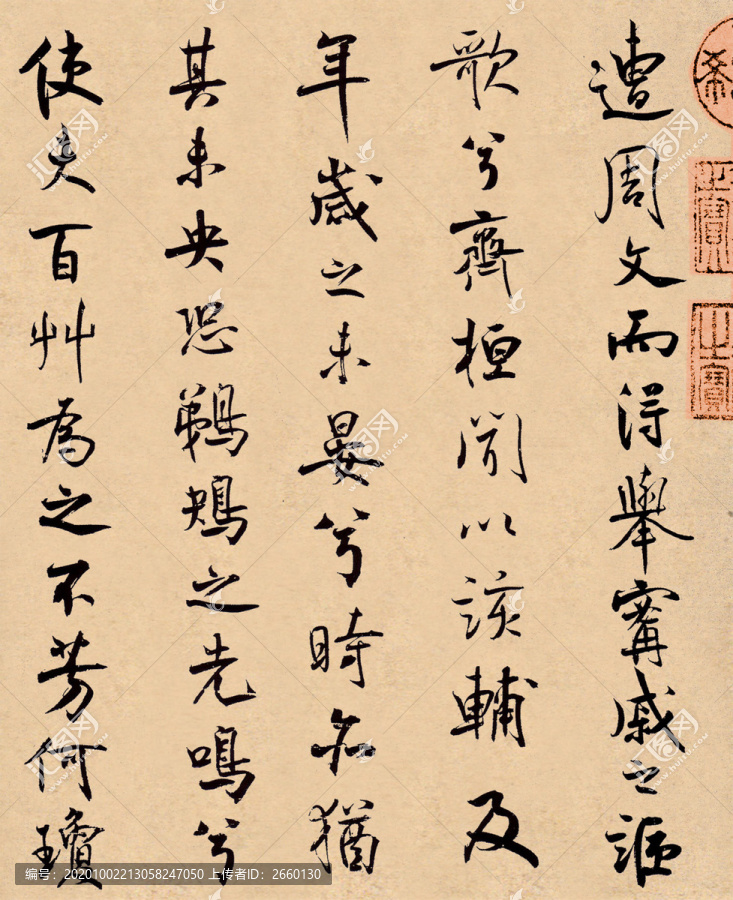 遭周文而得舉甯戚之謳
歌兮齊桓聞以該輔及
年歲之未晏兮時亦猶
其未央恐鵜鴂之先鳴兮
使夫百艸為之不芳何瓊
之寶
之寶
编号：20201002213058247050 上传者ID：2660130